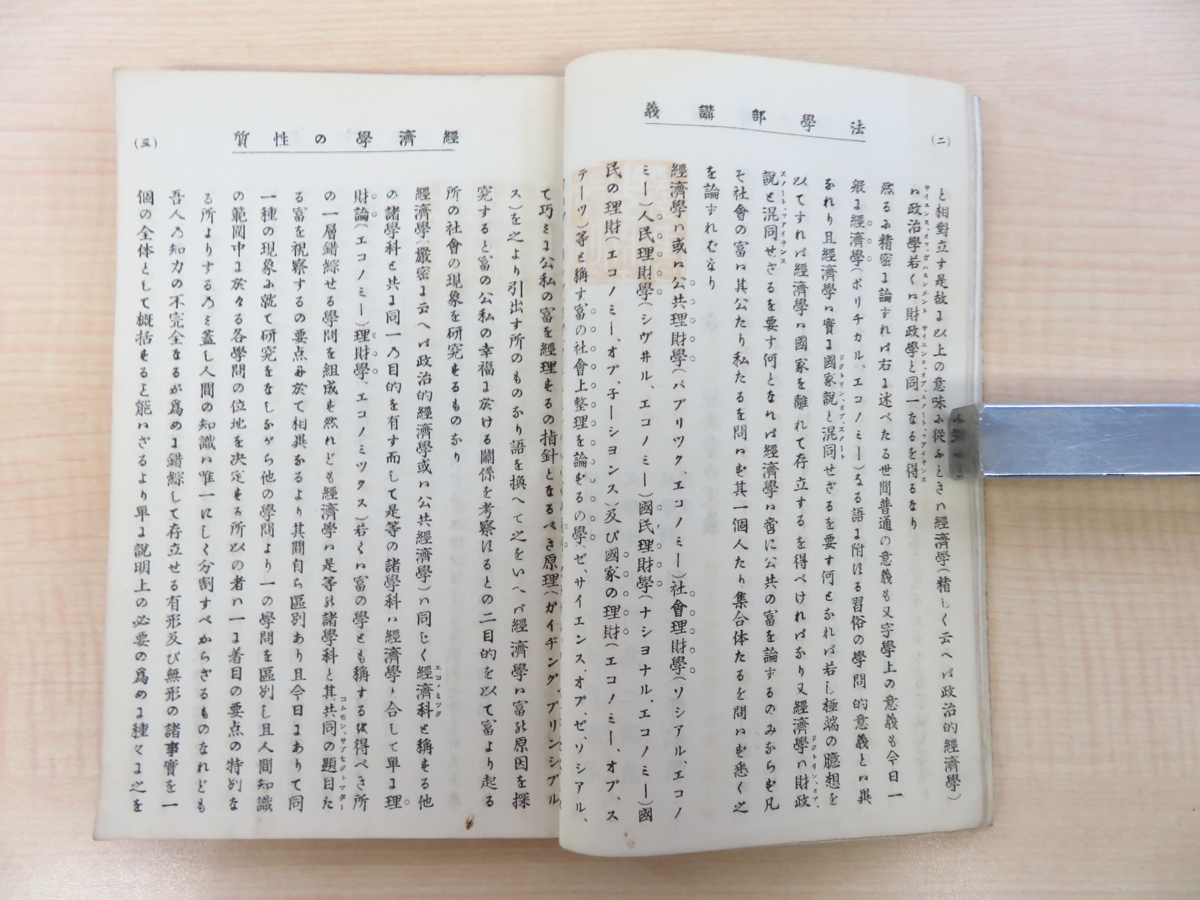 (二)
法學部講義
と相對立す是故ま以上の意味ふ從ふときハ經濟學(精しく云へハ政治的經濟學)
ハ政治學若くハ財政學と同一なるを得るなり
サイエンス、オブ、ガバンメント
サイエンス、オブ、ステート、フアイナンス
然るふ精密ま論すれハ右ま述べたる世間普通の意義も又字學上の意義も今日一
般ま經濟學(ポリチカル、エコノミー)なる語ま附はる習俗の學問的意義とハ異
なれり且經濟學ハ實ま國家說と混同せざるを要す何となれハ若し極端の臆想を
ドクトリン、オブ、ステート
以てすれハ經濟學ハ國家を離れて存立するを得べけれハなり又經濟學ハ財政
ドクトリン、オブ、
說と混同せざるを要す何となれハ經濟學ハ常に公共の富を論するのみならも凡
ステート、フアイナンス
そ社會の富ハ其公たり私たるを問いも其一個人たり集合体たるを問いも悉く之
を論すれむなり
經濟學ハ或ハ公共理財學(パブリツク、エコノミー)社會理財學(ソシアル、エコノ
ミー)人民理財學(シヴ井ル、エコノミー)國民理財學(ナシヨナル、エコノミー)國
民の理財(エコノミー、オブ、子ーシヨンス)及び國家の理財(エコノミー、オブ、ス
テーツ)等と稱す富の社會上整理を論もるの學、ゼ、サイエンス、オブ、ゼ、ソシアル、
經濟學の性質
(三)
て巧まま公私の富を經理もるの指針となるべき原理(ガイヂング、プリンシプル
ス)を之より引出す所のものなり語を換へて之をいへハ經濟學ハ富の原因を探
究すると富の公私の幸福ま於ける關係を考察はるとの二目的を以て富より起る
所の社會の現象を研究もるものなり
經濟學(嚴密ま云へハ政治的經濟學或ハ公共經濟學)ハ同しく經濟科と稱もる他
エコノミツク
の諸學科と共ま同一乃目的を有す而して是等の諸學科ハ經濟學と合して單ま理
財論(エコノミー)理財學、エコノミツクス)若くハ富の學とも稱するを得べき所
の一層錯綜せる學問を組成も然れども經濟學ハ是等の諸學科と其共同の題目た
コムモン、サブゼクト、マター
る富を視察するの要点ま於て相異なるより其間自ら區別あり且今日まありて同
一種の現象ま就て研究をなしながら他の學問より一の學問を區別し且人間知識
の範圍中ま於る各學問の位地を決定もる所以の者ハ一ま着目の要点の特別な
る所よりする乃ミ蓋し人間の知識ハ唯一にして分割すべからざるものなれども
吾人乃知力の不完全なるが爲めま錯綜して存立せる有形及び無形の諸事實を一
個の全体として概括もると能いざるより單ま說明上の必要の爲めま種々ま之を